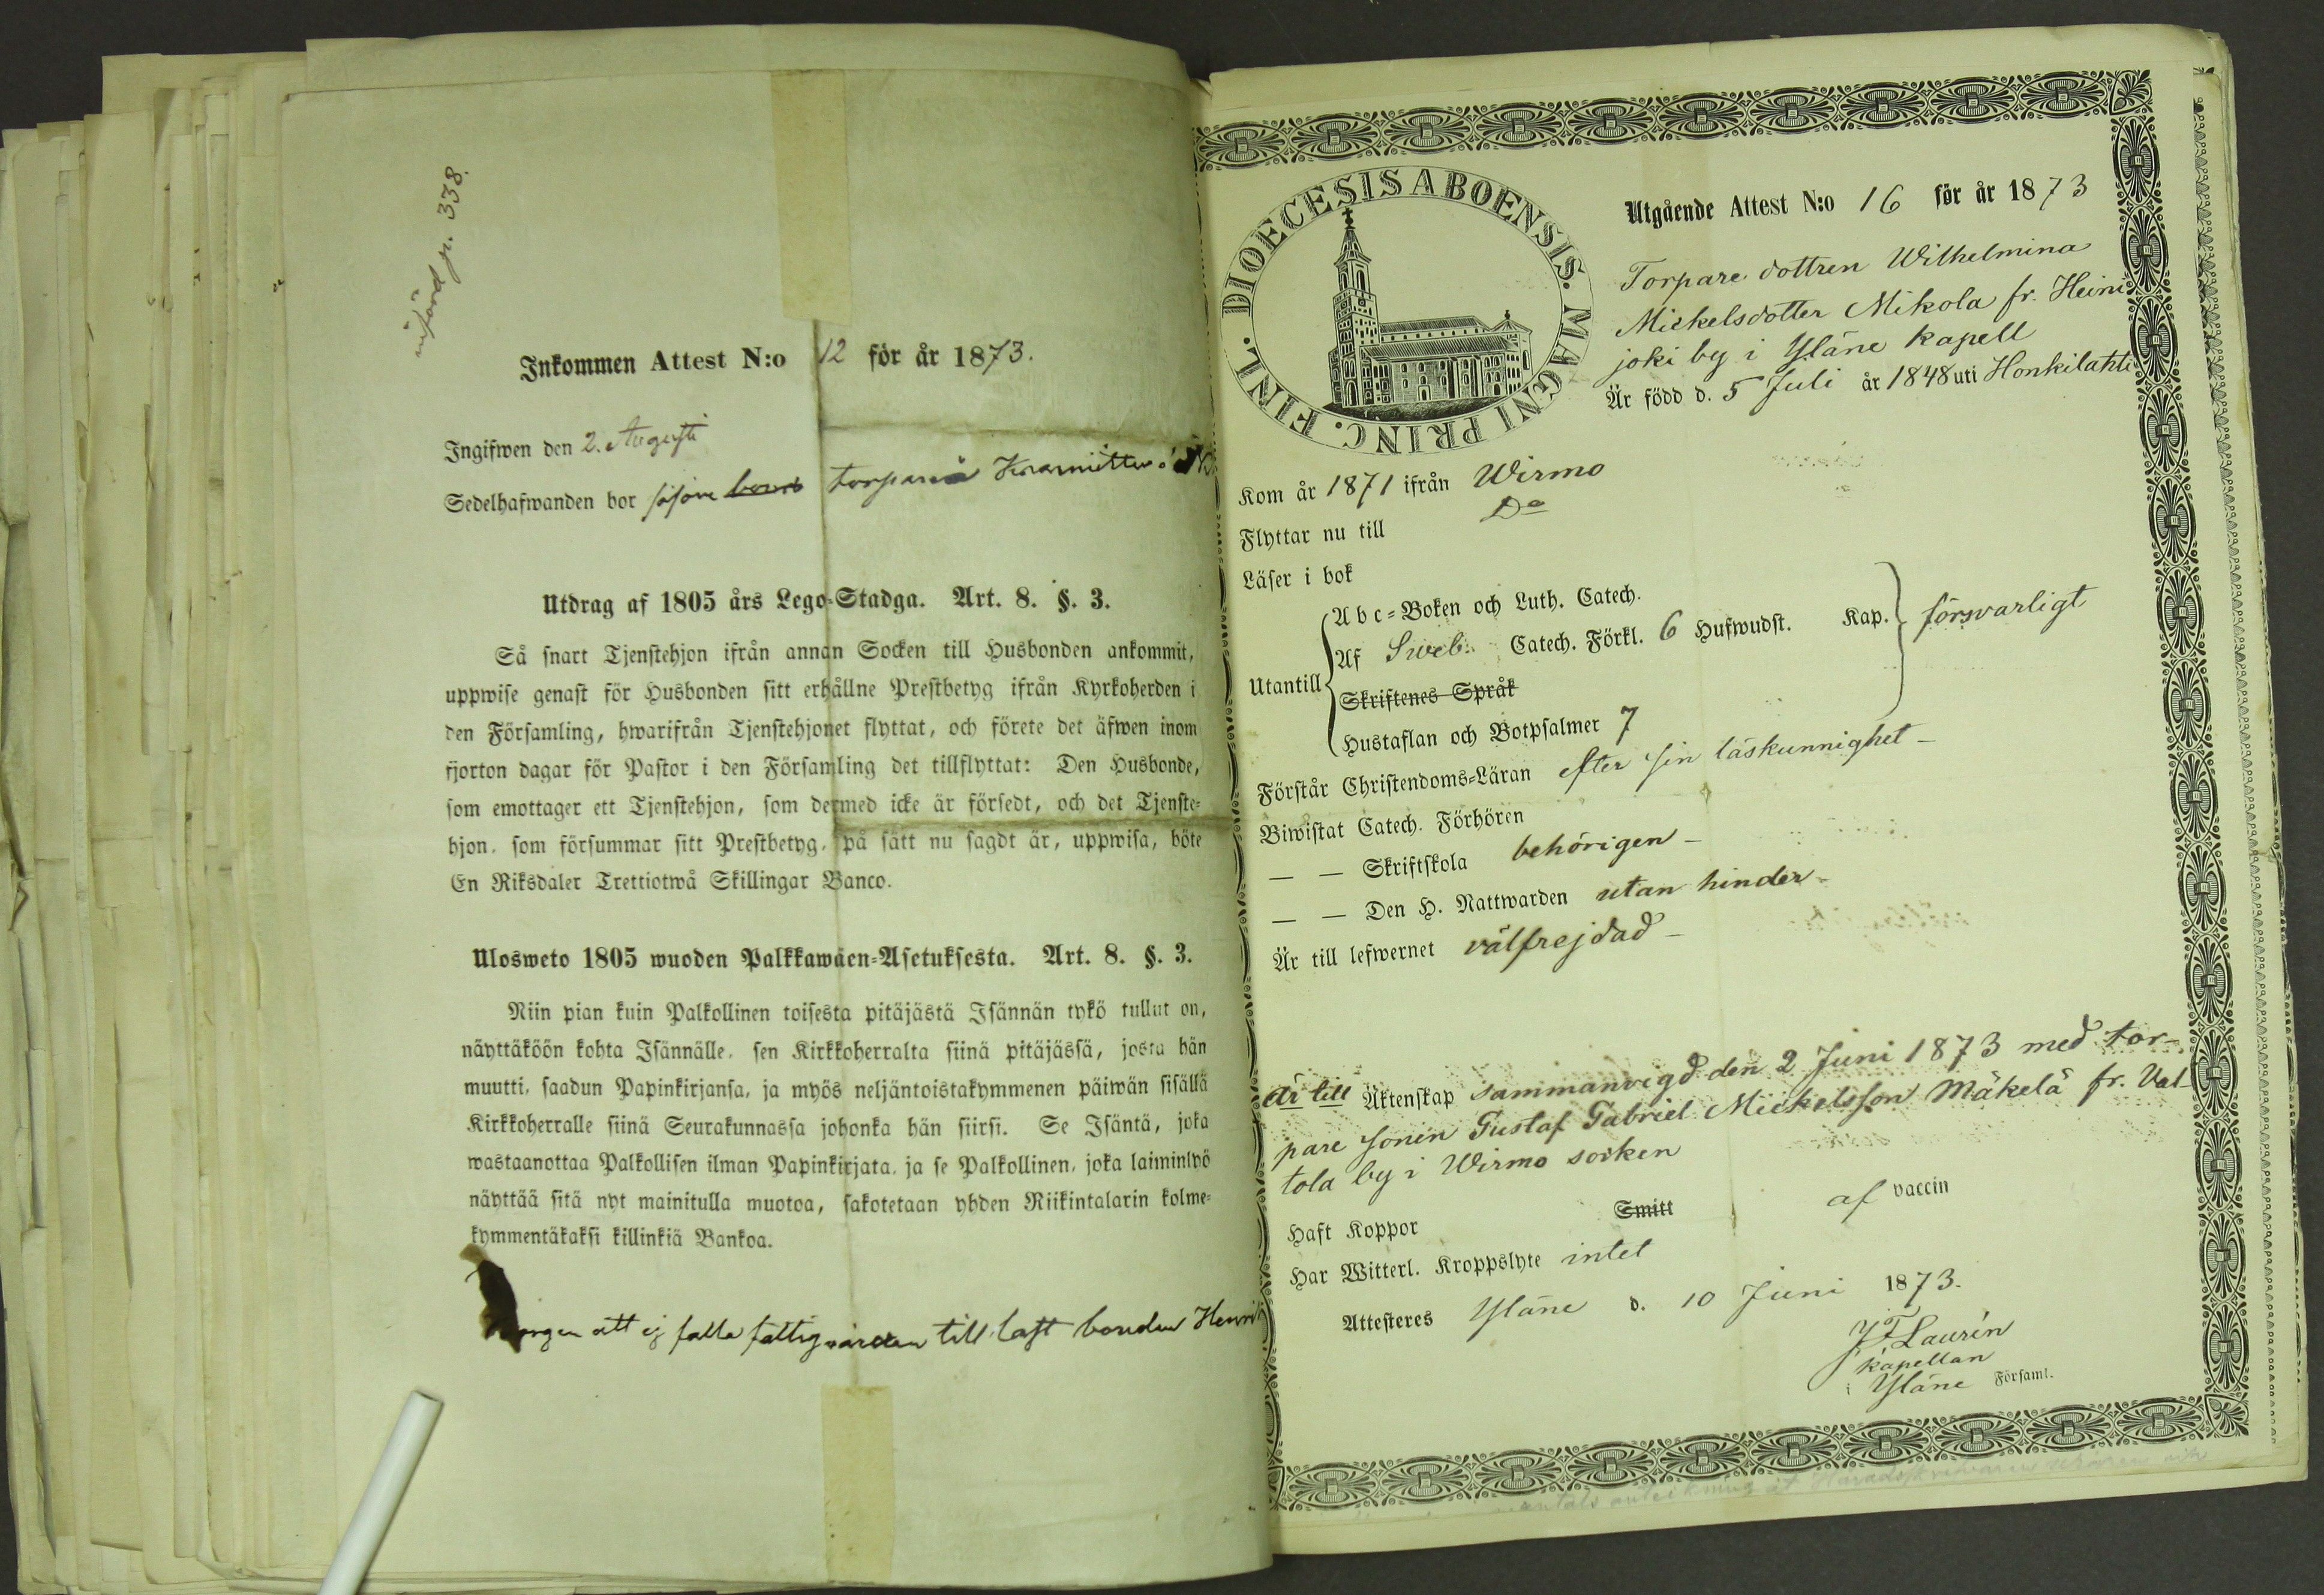 införd p. 338.
Inkommen Attest N:o 12 för år 1873.
Ingifwen den 2. Augusti
Sedelhafwanden bor
Utdrag af 1805 års Lego-Stadga. Art. 8. §. 3.
Så snart Tjenstehjon ifrån annan Socken till Husbonden ankommit,
uppwise genast för Husbonden sitt erhållne Prestbetyg ifrån Kyrkoherden i
den Församling, hwarifrån Tjenstehjonet flyttat, och förete det äfwen inom
fjorton dagar för Pastor i den Församling det tillflyttat: Den Husbonde,
som emottager ett Tjenstehjon, som dermed icke är försedt, och det Tjenste-
hjon, som försummar sitt Prestbetyg, på sätt nu sagdt är, uppwisa, böte
En Riksdaler Trettiotwå Skillingar Banco.
Ulosweto 1805 wuoden Palkkawäen-Asetuksesta. Art. 8. §. 3.
Niin pian kuin Palkollinen toisesta pitäjästä Isännän tykö tullut on,
näyttäköön kohta Isännälle, sen Kirkkoherralta siinä pitäjässä, josta hän
muutti, saadun Papinkirjansa, ja myös neljäntoistakymmenen päiwän sisällä
Kirkkoherralle siinä Seurakunnassa johonka hän siirsi. Se Isäntä, joka
wastaanottaa Palkollisen ilman Papinkirjata, ja se Palkollinen, joka laiminlyö
näyttää sitä nyt mainitulla muotoa, sakotetaan yhden Riikintalarin kolme-
kymmentäkaksi killinkiä Bankoa.
att ej falla fattigvården till last bonden Henrik
FINL. DIOECESIS ABOENSIS. MAGNI PRINC.
Utgående Attest N:o 16 för år 1873
Torpare dottren Wilhelmina
Mickelsdotter Mikola fr. Heini
joki by i Yläne kapell
Är född d. 5 Juli år 1848 uti Honkilahti
Kom år 1871 ifrån Wirmo
Flyttar nu till Do
Läser i bok
Abc-Boken och Luth. Catech.
Utantill Af Sweb. Catech. Förkl. 6 Hufwudst. Kap. försvarligt
Skriftenes Språk
Hustaflan och Botpsalmer 7
Förstår Christendoms-Läran efter sin läskunnighet –
Biwistat Catech. Förhören
— — Skriftskola behörigen –
— — Den H. Nattwarden utan hinder –
Är till lefwernet välfrejdad –
är till Äktenskap sammanvigd den 2 Juni 1873 med tor-
pare sonen Gustaf Gabriel Mickelsson Mäkelä fr. Val-
tola by i Wirmo socken
Haft Koppor Smitt af vaccin
Har Witterl. Kroppslyte intet
Attesteres Yläne d. 10 Juni 1873.
J F Laurén
kapellan
i Yläne Församl.